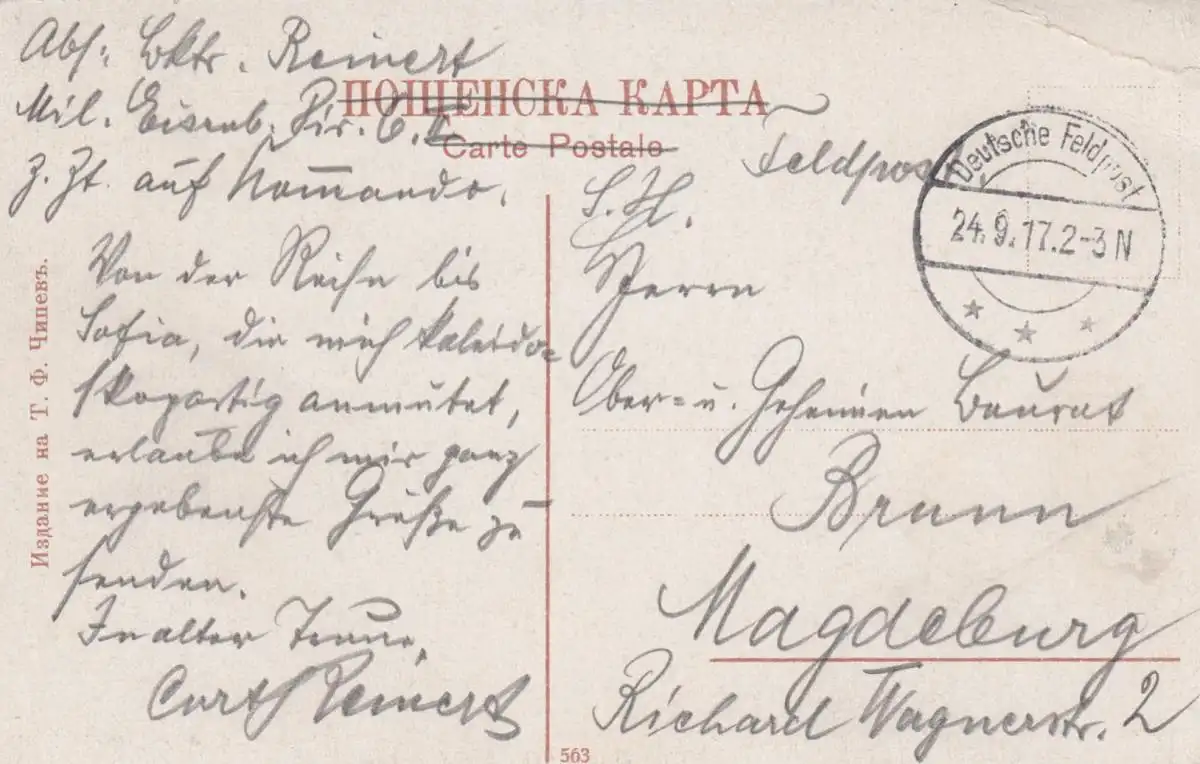 Abs: Bktr. Reinert
Mil. Eisenb. Dir. 6.
z. Zt. auf Kommando.
ПОЩЕНСКА КАРТА
Carte Postale
Feldpost
Deutsche Feldpost
24.9.17.2-3 N
Von der Reise bis
Sofia, die mich kaleido-
skopartig anmutet,
erlaube ich mir ganz
ergebenste Grüße zu
senden.
In alter Treue,
Curth Reinert
S. H.
Herrn
Ober= u. Geheimen Baurat
Brunn
Magdeburg
Richard Wagnerstr. 2
Издание на Т. Ф. Чипевъ.
563